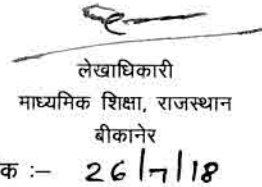 लेखाधिकारी
माध्यमिक शिक्षा, राजस्थान
बीकानेर
क :– 26/7/18